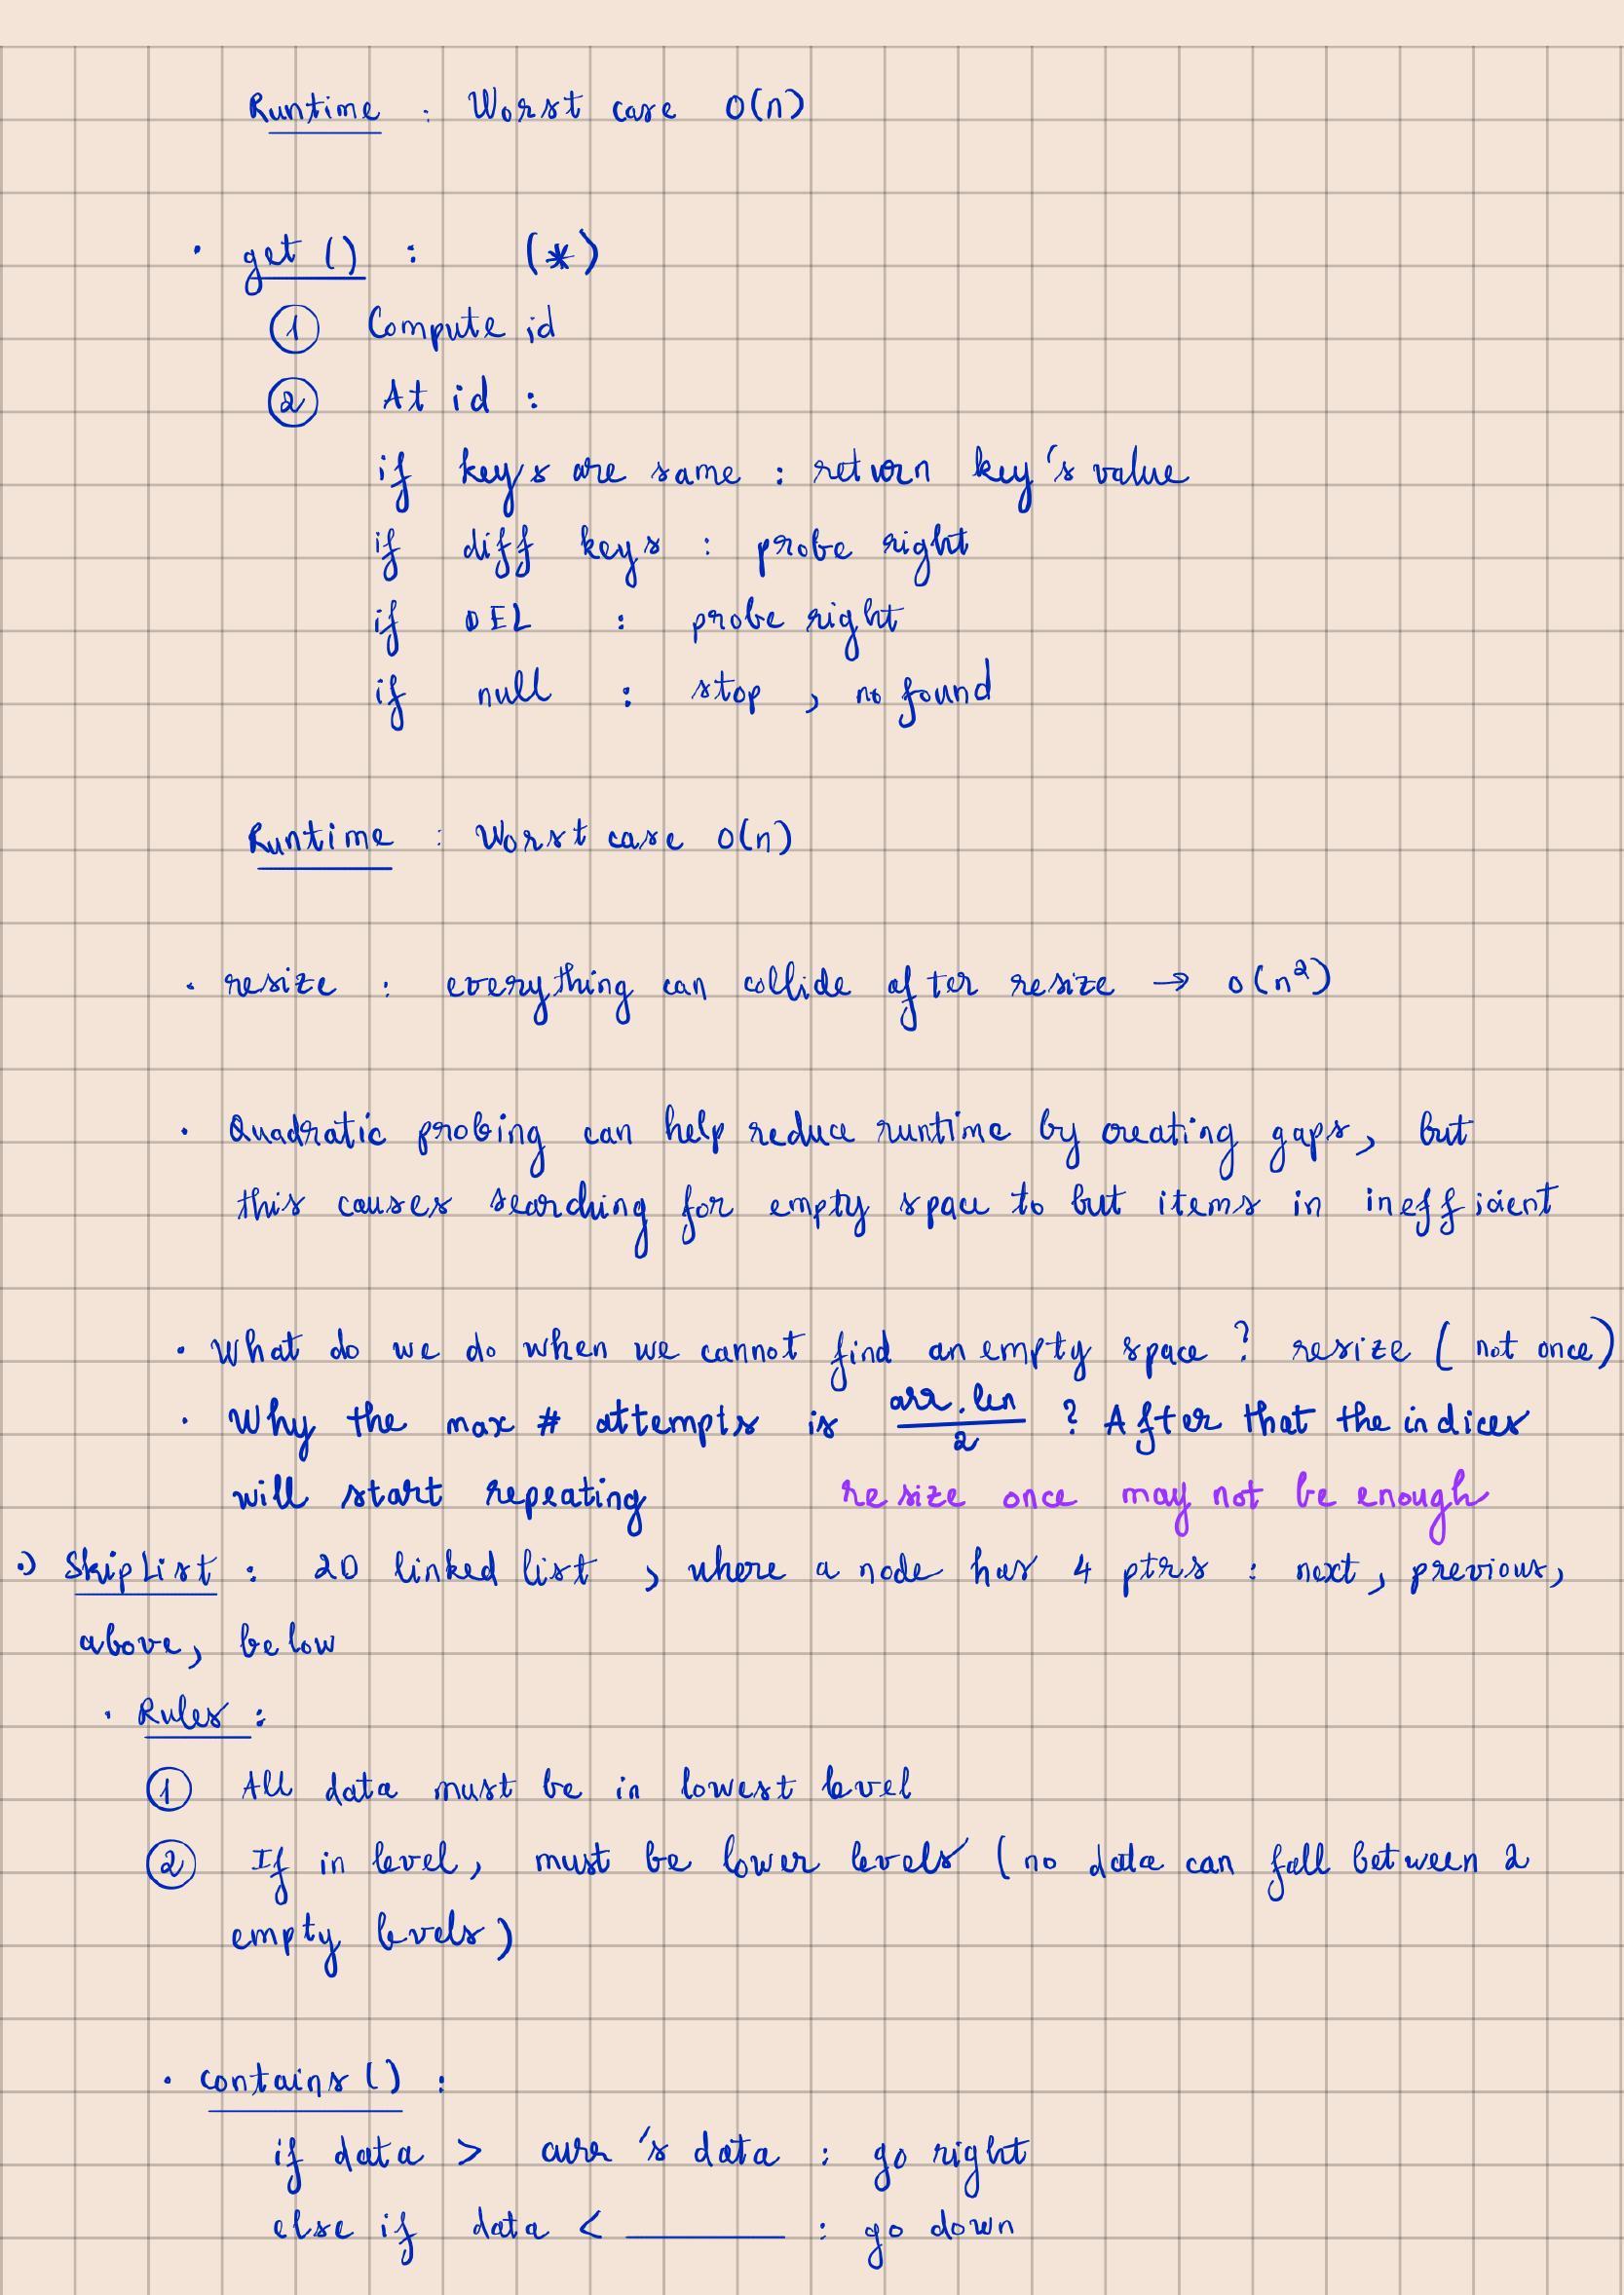 Runtime : Worst case O(n)
· get () : (*)
① Compute id
② At id :
if keys are same : return key's value
if diff keys : probe right
if DEL : probe right
if null : stop , no found
Runtime : Worst case O(n)
· resize : everything can collide after resize → O(n²)
· Quadratic probing can help reduce runtime by creating gaps, but
this causes searching for empty space to but items in inefficient
· What do we do when we cannot find an empty space ? resize ( not once)
· Why the max # attempts is arr.len/2 ? After that the indices
will start repeating resize once may not be enough
·) SkipList : 2D linked list , where a node has 4 ptrs : next, previous,
above, below
· Rules :
① All data must be in lowest level
② If in level, must be lower levels (no data can fall between 2
empty levels)
· contains () :
if data > curr 's data : go right
else if data < ______ : go down